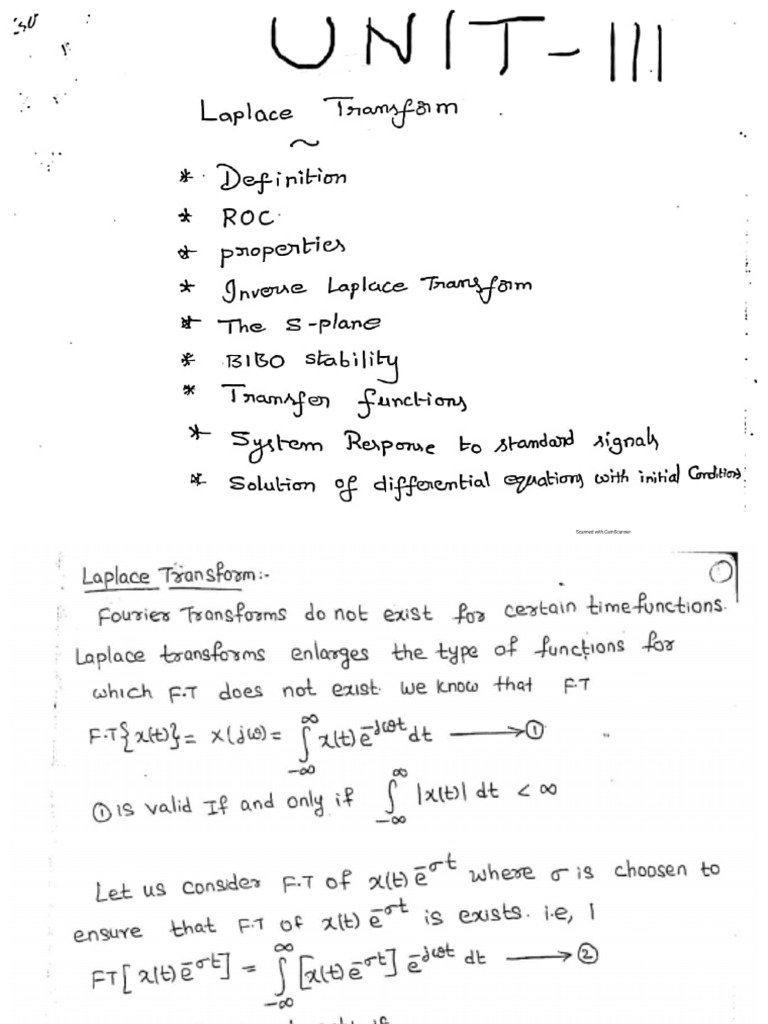 UNIT-III
Laplace Transform
* Definition
* ROC
* properties
* Inverse Laplace Transform
* The S-plane
* BIBO stability
* Transfer functions
* System Response to standard signals
* Solution of differential equations with initial Conditions
Scanned with CamScanner
Laplace Transform:-
①
Fourier Transforms do not exist for certain time functions.
Laplace transforms enlarges the type of functions for
which F.T does not exist. we know that F.T
F.T{x(t)} = X(jω) = ∫_{-∞}^{∞} x(t) e^{-jωt} dt ⟶ ①
① is valid If and only if ∫_{-∞}^{∞} |x(t)| dt < ∞
Let us consider F.T of x(t) e^{-σt} where σ is choosen to
ensure that F.T of x(t) e^{-σt} is exists. i.e,
FT[x(t) e^{-σt}] = ∫_{-∞}^{∞} [x(t) e^{-σt}] e^{-jωt} dt ⟶ ②
if